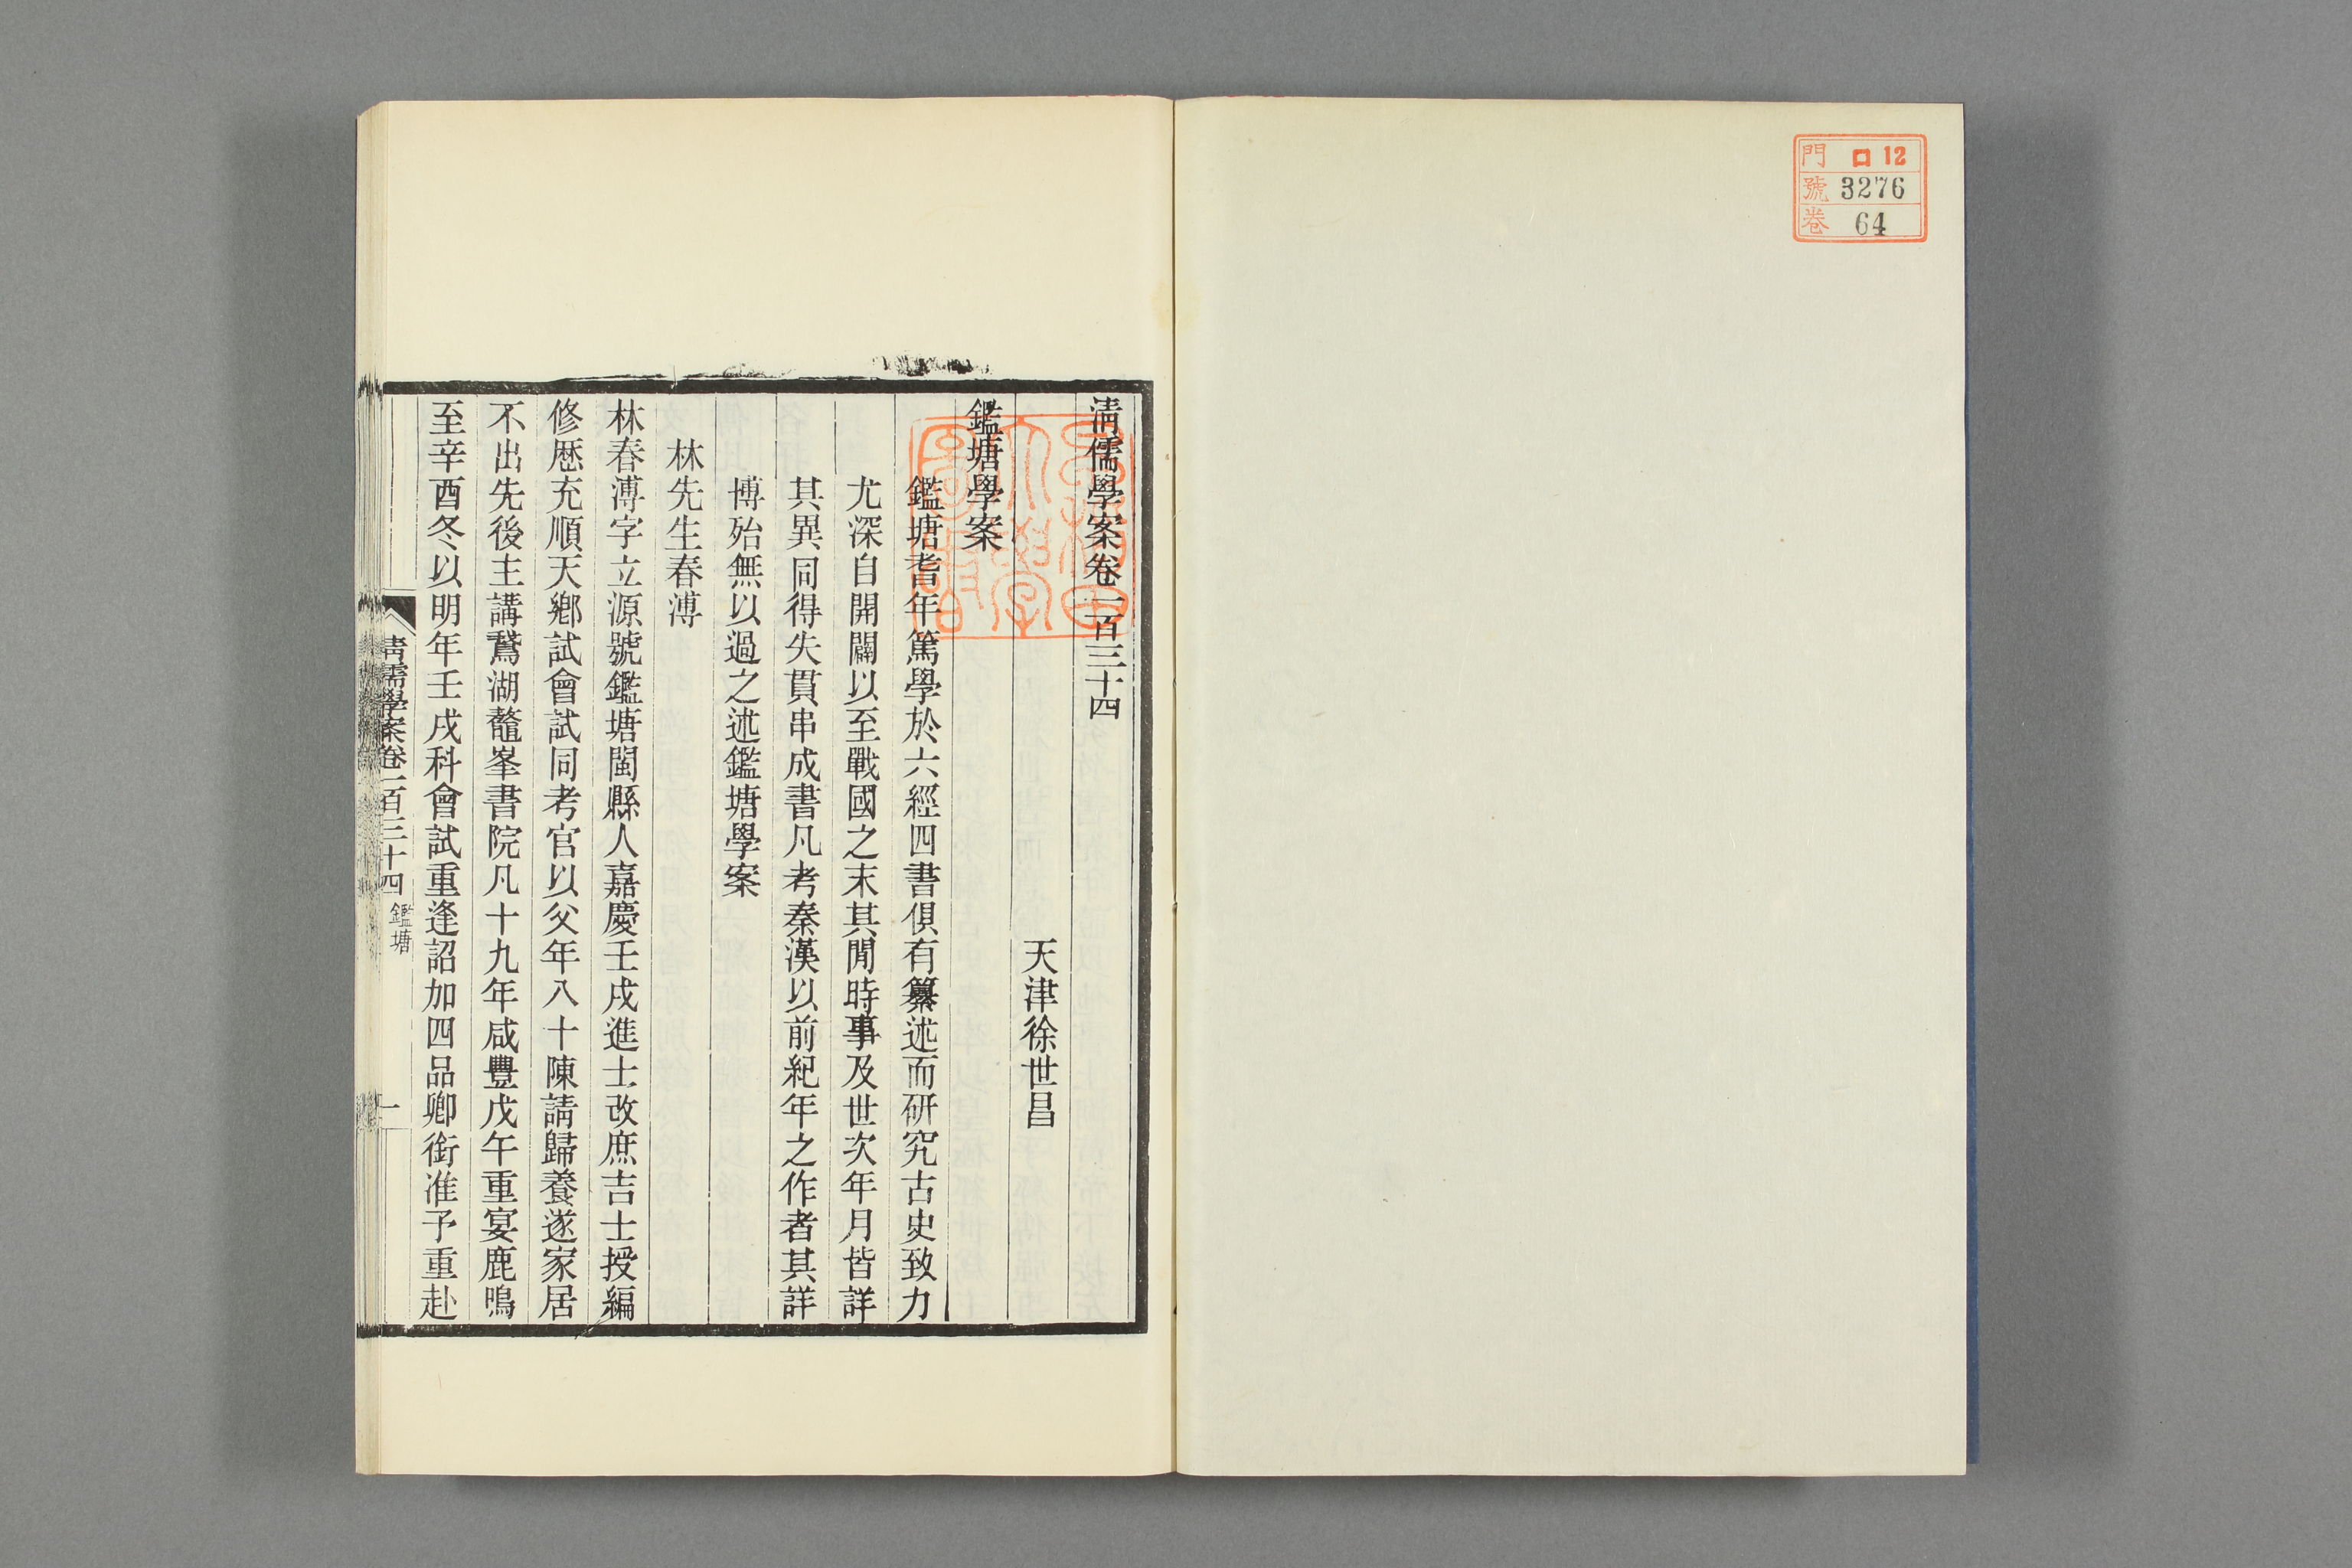 門 ロ12
號 3276
卷 64
清儒學案卷一百三十四
天津徐世昌
鑑塘學案
鑑塘耆年篤學於六經四書俱有纂述而研究古史致力
尤深自開闢以至戰國之末其閒時事及世次年月皆詳
其異同得失貫串成書凡考秦漢以前紀年之作者其詳
博殆無以過之述鑑塘學案
林先生春溥
林春溥字立源號鑑塘閩縣人嘉慶壬戌進士改庶吉士授編
修歷充順天鄉試會試同考官以父年八十陳請歸養遂家居
不出先後主講鵞湖鼇峯書院凡十九年咸豐戊午重宴鹿鳴
至辛酉冬以明年壬戌科會試重逢詔加四品卿銜准予重赴
清儒學案卷一百三十四 鑑塘 一
早稻田大學圖書